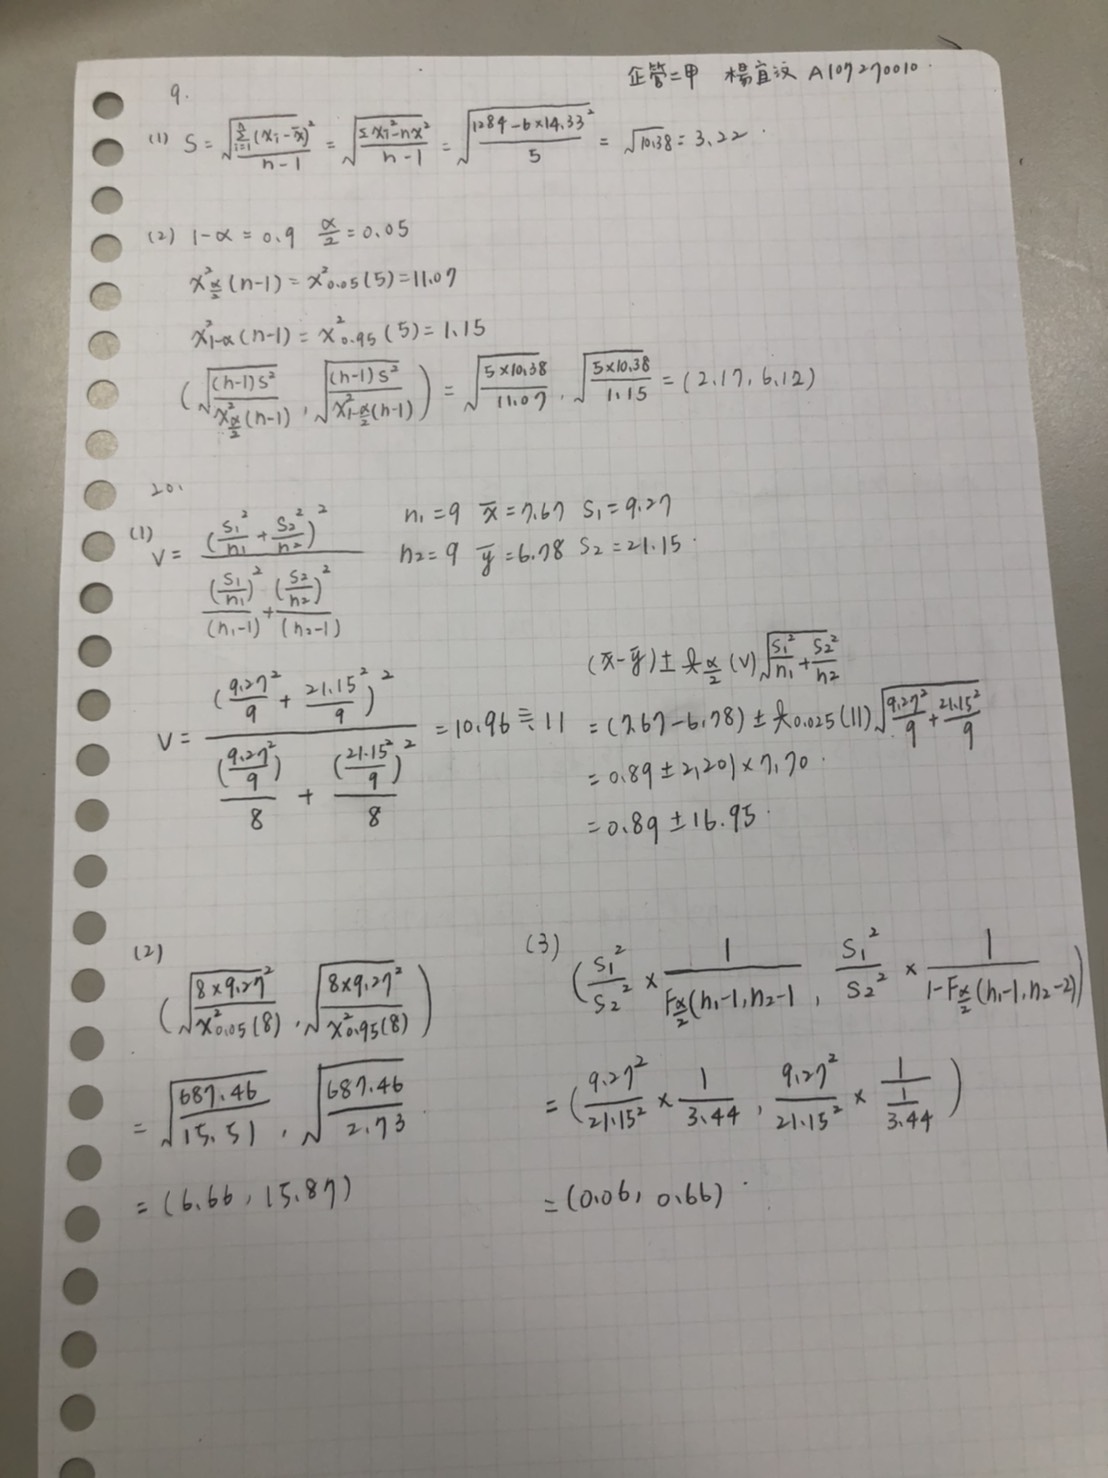 企管二甲 楊宜汶 A107270010.
9.
(1) S = √(Σ_{i=1}^{n}(xᵢ-x̄)²/(n-1)) = √((Σxᵢ²-nx̄²)/(n-1)) = √((1284-6×14.33²)/5) = √10.38 = 3.22.
(2) 1-α = 0.9 α/2 = 0.05
x²_{α/2}(n-1) = x²_{0.05}(5) = 11.07
x²_{1-α}(n-1) = x²_{0.95}(5) = 1.15
(√((n-1)s²/x²_{α/2}(n-1)), √((n-1)s²/x²_{1-α/2}(n-1))) = √(5×10.38/11.07), √(5×10.38/1.15) = (2.17, 6.12)
20.
(1) V = (S₁²/n₁ + S₂²/n₂)² / ((S₁/n₁)²/(n₁-1) + (S₂/n₂)²/(n₂-1))
n₁ = 9 x̄ = 7.67 S₁ = 9.27
n₂ = 9 ȳ = 6.78 S₂ = 21.15.
V = (9.27²/9 + 21.15²/9)² / ((9.27²/9)/8 + (21.15²/9)²/8) = 10.96 ≡ 11
(x̄-ȳ) ± t_{α/2}(V)√(S₁²/n₁ + S₂²/n₂)
= (7.67-6.78) ± t_{0.025}(11)√(9.27²/9 + 21.15²/9)
= 0.89 ± 2,201 × 7.70.
= 0.89 ± 16.95.
(2)
(√(8×9.27²/x²_{0.05}(8)), √(8×9.27²/x²_{0.95}(8)))
= √(687.46/15.51), √(687.46/2.73)
= (6.66, 15.87)
(3) (S₁²/S₂² × 1/F_{α/2}(n₁-1, n₂-1, S₁²/S₂² × 1/1-F_{α/2}(n₁-1, n₂-2))
= (9.27²/21.15² × 1/3.44, 9.27²/21.15² × 1/(1/3.44))
= (0.06, 0.66).